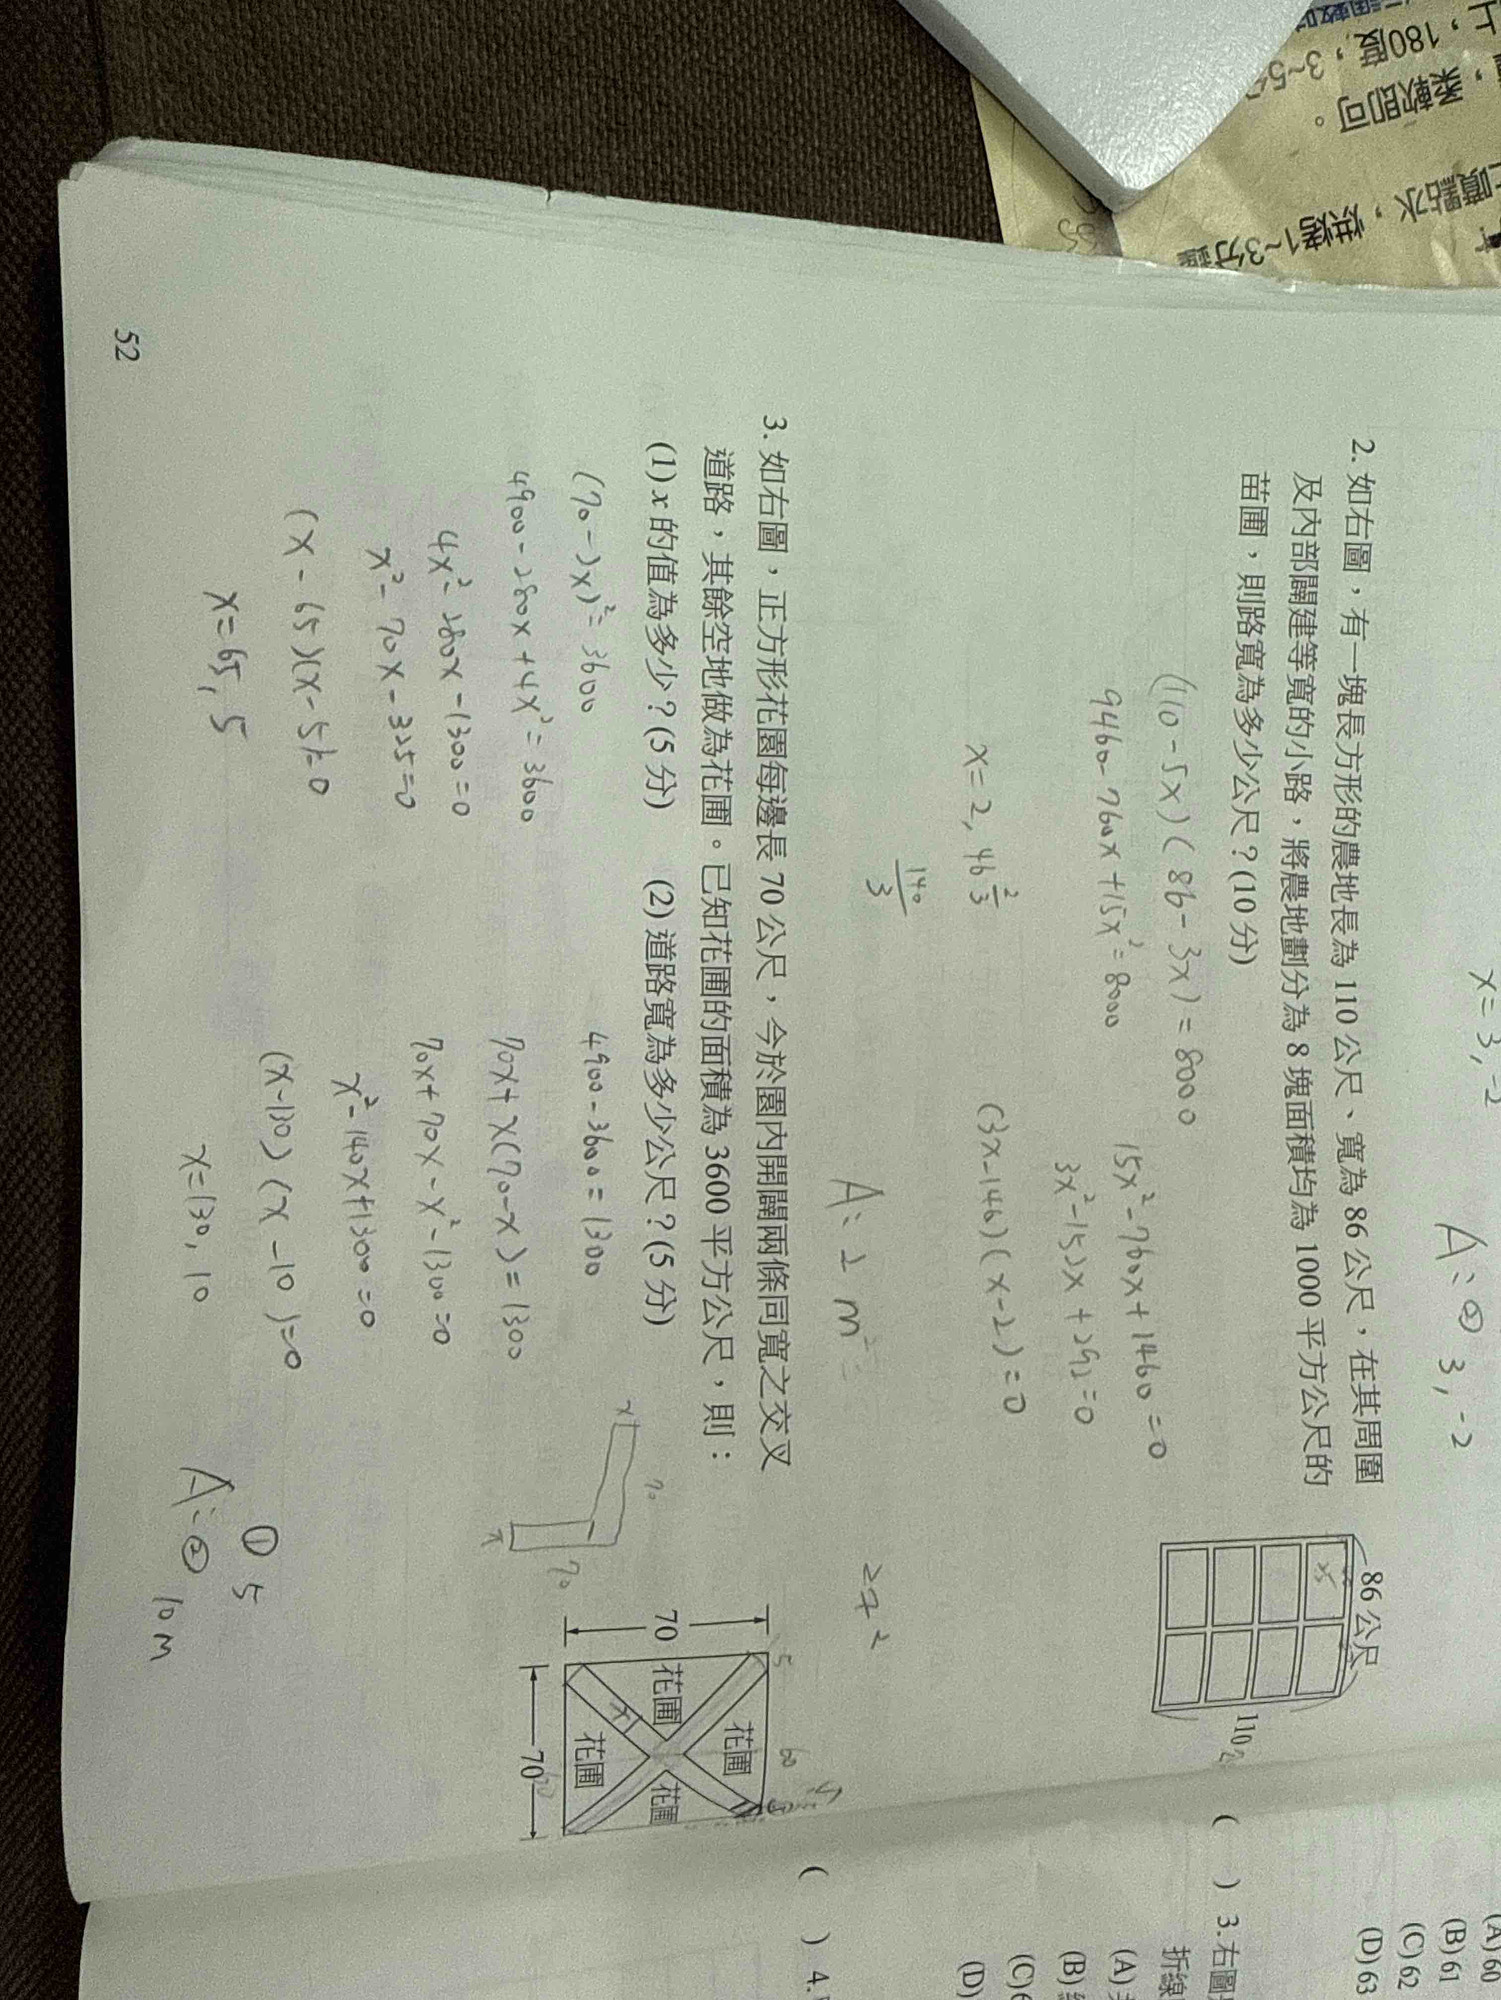 x=3,-2
A:② 3,-2
2.如右圖，有一塊長方形的農地長為110公尺、寬為86公尺，在其周圍
及內部闢建等寬的小路，將農地劃分為8塊面積均為1000平方公尺的
苗圃，則路寬為多少公尺？(10分)
86公尺
110
(110-5x)(86-3x)=8000
9460-760x+15x²=8000
x=2, 46 2/3
140/3
15x²-760x+1460=0
3x²-152x+292=0
(3x-146)(x-2)=0
A:2 m²
3.如右圖，正方形花園每邊長70公尺，今於園內開闢兩條同寬之交叉
道路，其餘空地做為花圃。已知花圃的面積為3600平方公尺，則：
(1)x的值為多少？(5分)
(2)道路寬為多少公尺？(5分)
(70-2x)²=3600
4900-280x+4x²=3600
4x²-280x+1300=0
x²-70x+325=0
(x-65)(x-5)=0
x=65,5
4900-3600=1300
70x+x(70-x)=1300
70x+70x-x²-1300=0
x²-140x+1300=0
(x-130)(x-10)=0
x=130,10
x
70
70
x
70
5
60
花圃
花圃
花圃
花圃
x
70
① 5
A:② 10m
52
(A)60
(B)61
(C)62
(D)63
( ) 3.右圖
折線
(A)
(B)
(C)
(D)
( ) 4.
上，180度，3~5分
，柔軟即可。
噴點水，烘烤1~3分鐘